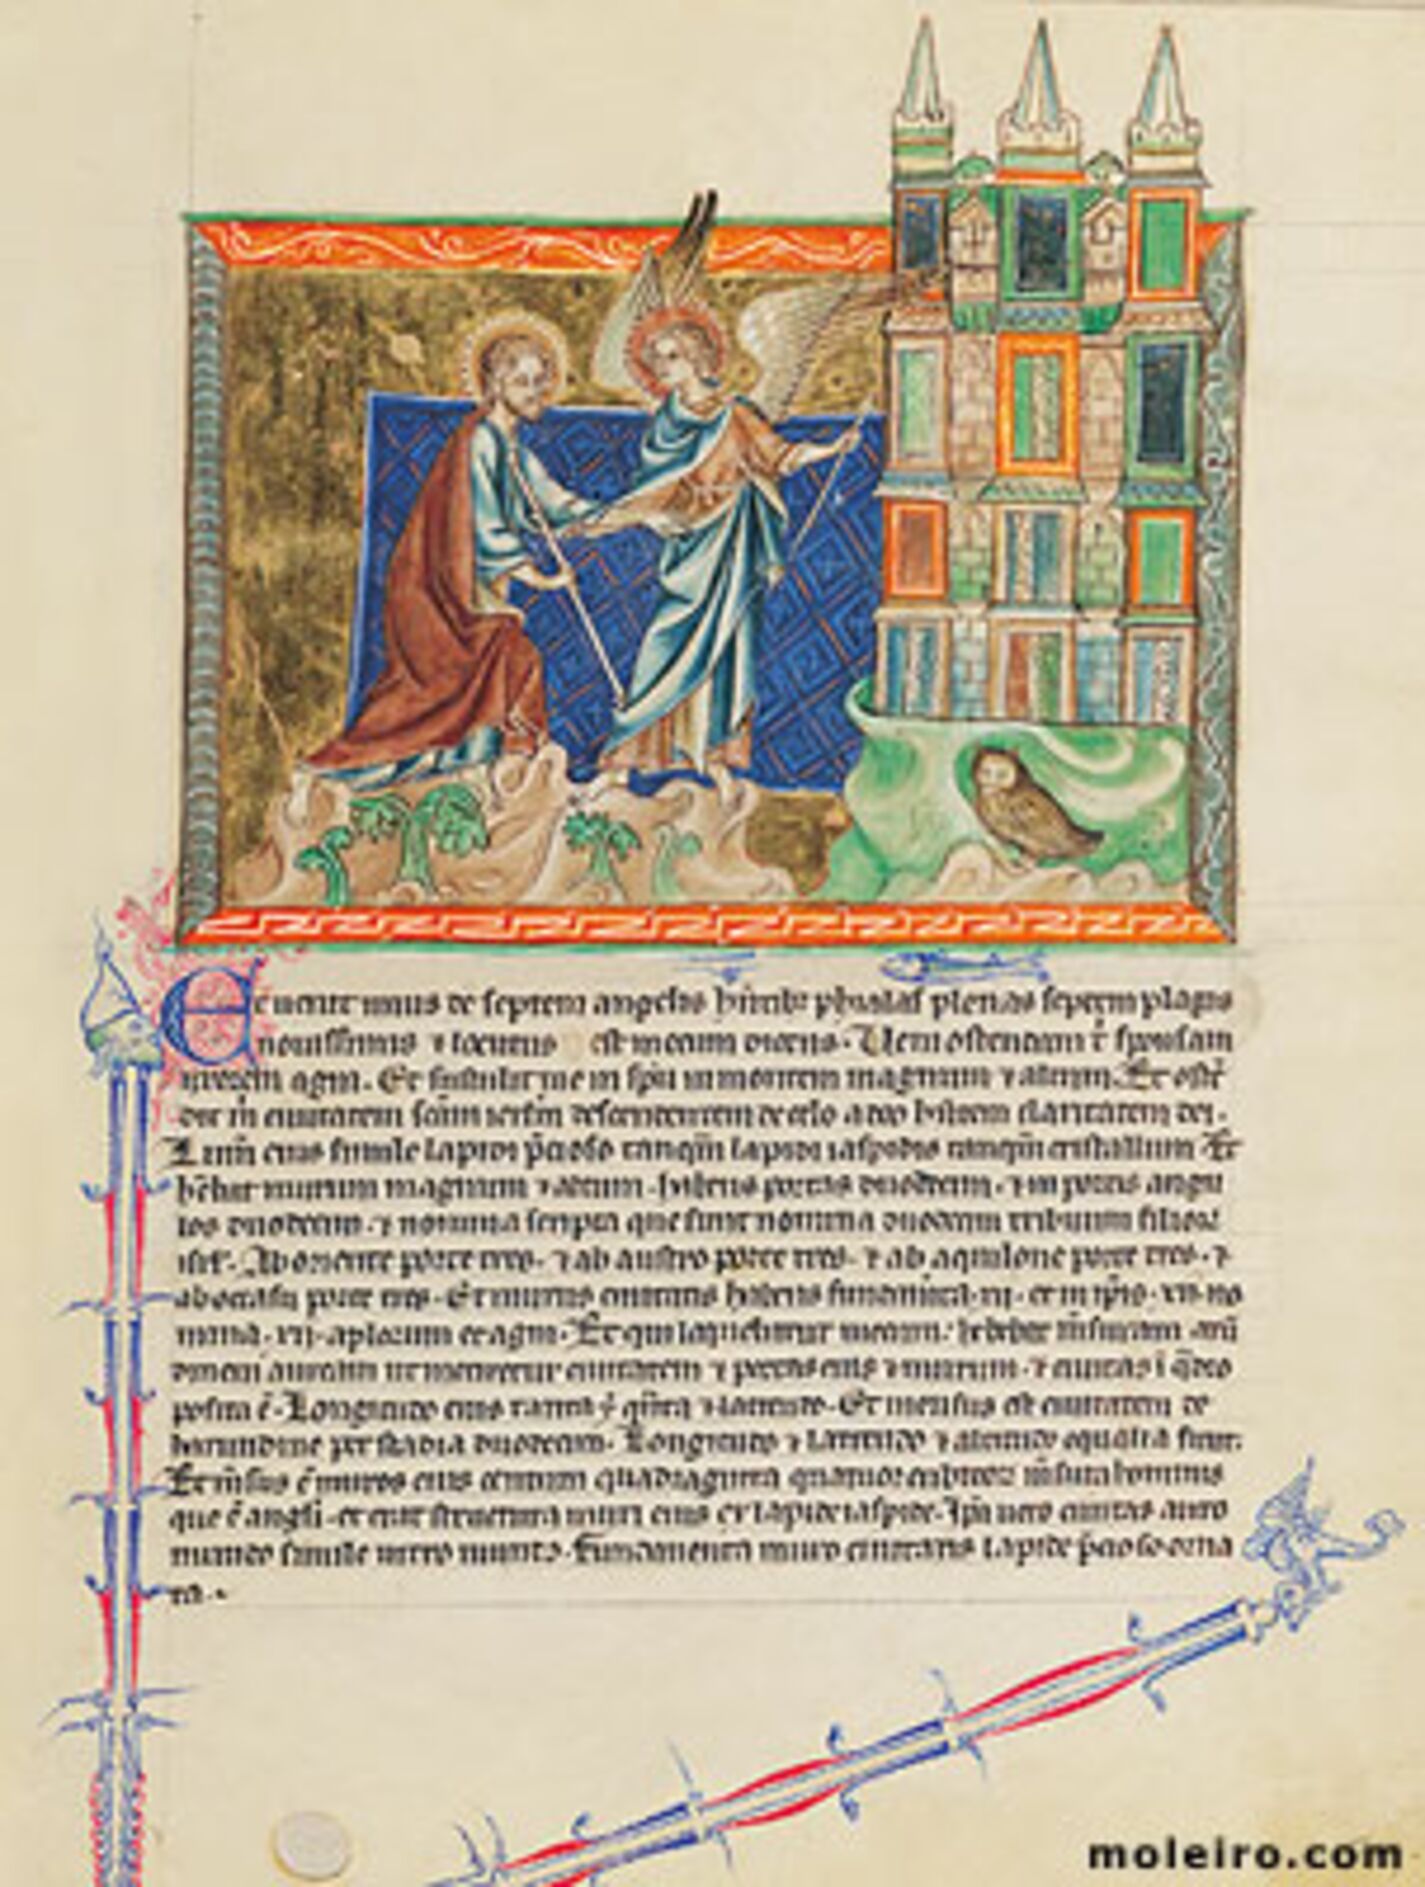 Et uenit unus de septem angelis hntibz phialas plenas septem plagis
nouissimis ⁊ locutus est mecum dicens. Ueni ostendam t̄ sponsam
uxorem agni. Et sustulit me in spu in montem magnum ⁊ altum. Et ostē
dit m̄ ciuitatem scām ierlm̄ descendentem de celo a deo habentem claritatem dei.
Lumē eius simile lapidi p̄cioso tanqm̄ lapidi iaspidis tanqm̄ cristallum Et
hēbat murum magnum ⁊ altum. habens portas duodecim. ⁊ in portis ange
los duodecim. ⁊ nomina scripta que sunt nomina duodecim tribuum filioꝝ
isrl. Ab oriente porte tres. ⁊ ab austro porte tres. ⁊ ab aquilone porte tres. ⁊
ab occasu porte tres. Et murus ciuitatis habens fundamta .xii. et in ip̄is .xii. no
mina .xii. aplorum et agni. Et qui loquebatur mecum. hebebat m̄suram arū
dineam auream ut metiretur ciuitatem ⁊ portas eius ⁊ murum. ⁊ ciuitas ī q̄dro
posita ē. Longitudo eius tanta ē q̄nta ⁊ latitudo. Et mensus est ciuitatem de
harundine per stadia duodecim. Longitudo ⁊ latitudo ⁊ altitudo equalia sunt.
Et m̄sus ē muros eius centum quadraginta quatuor cubitoꝝ m̄sura hominis
que ē angli. et erat structura muri eius ex lapide iaspide. Ip̄a uero ciuitas auro
mundo simile uitro mundo. Fundamenta muro ciuitatis lapide p̄cioso orna
ta.
moleiro.com